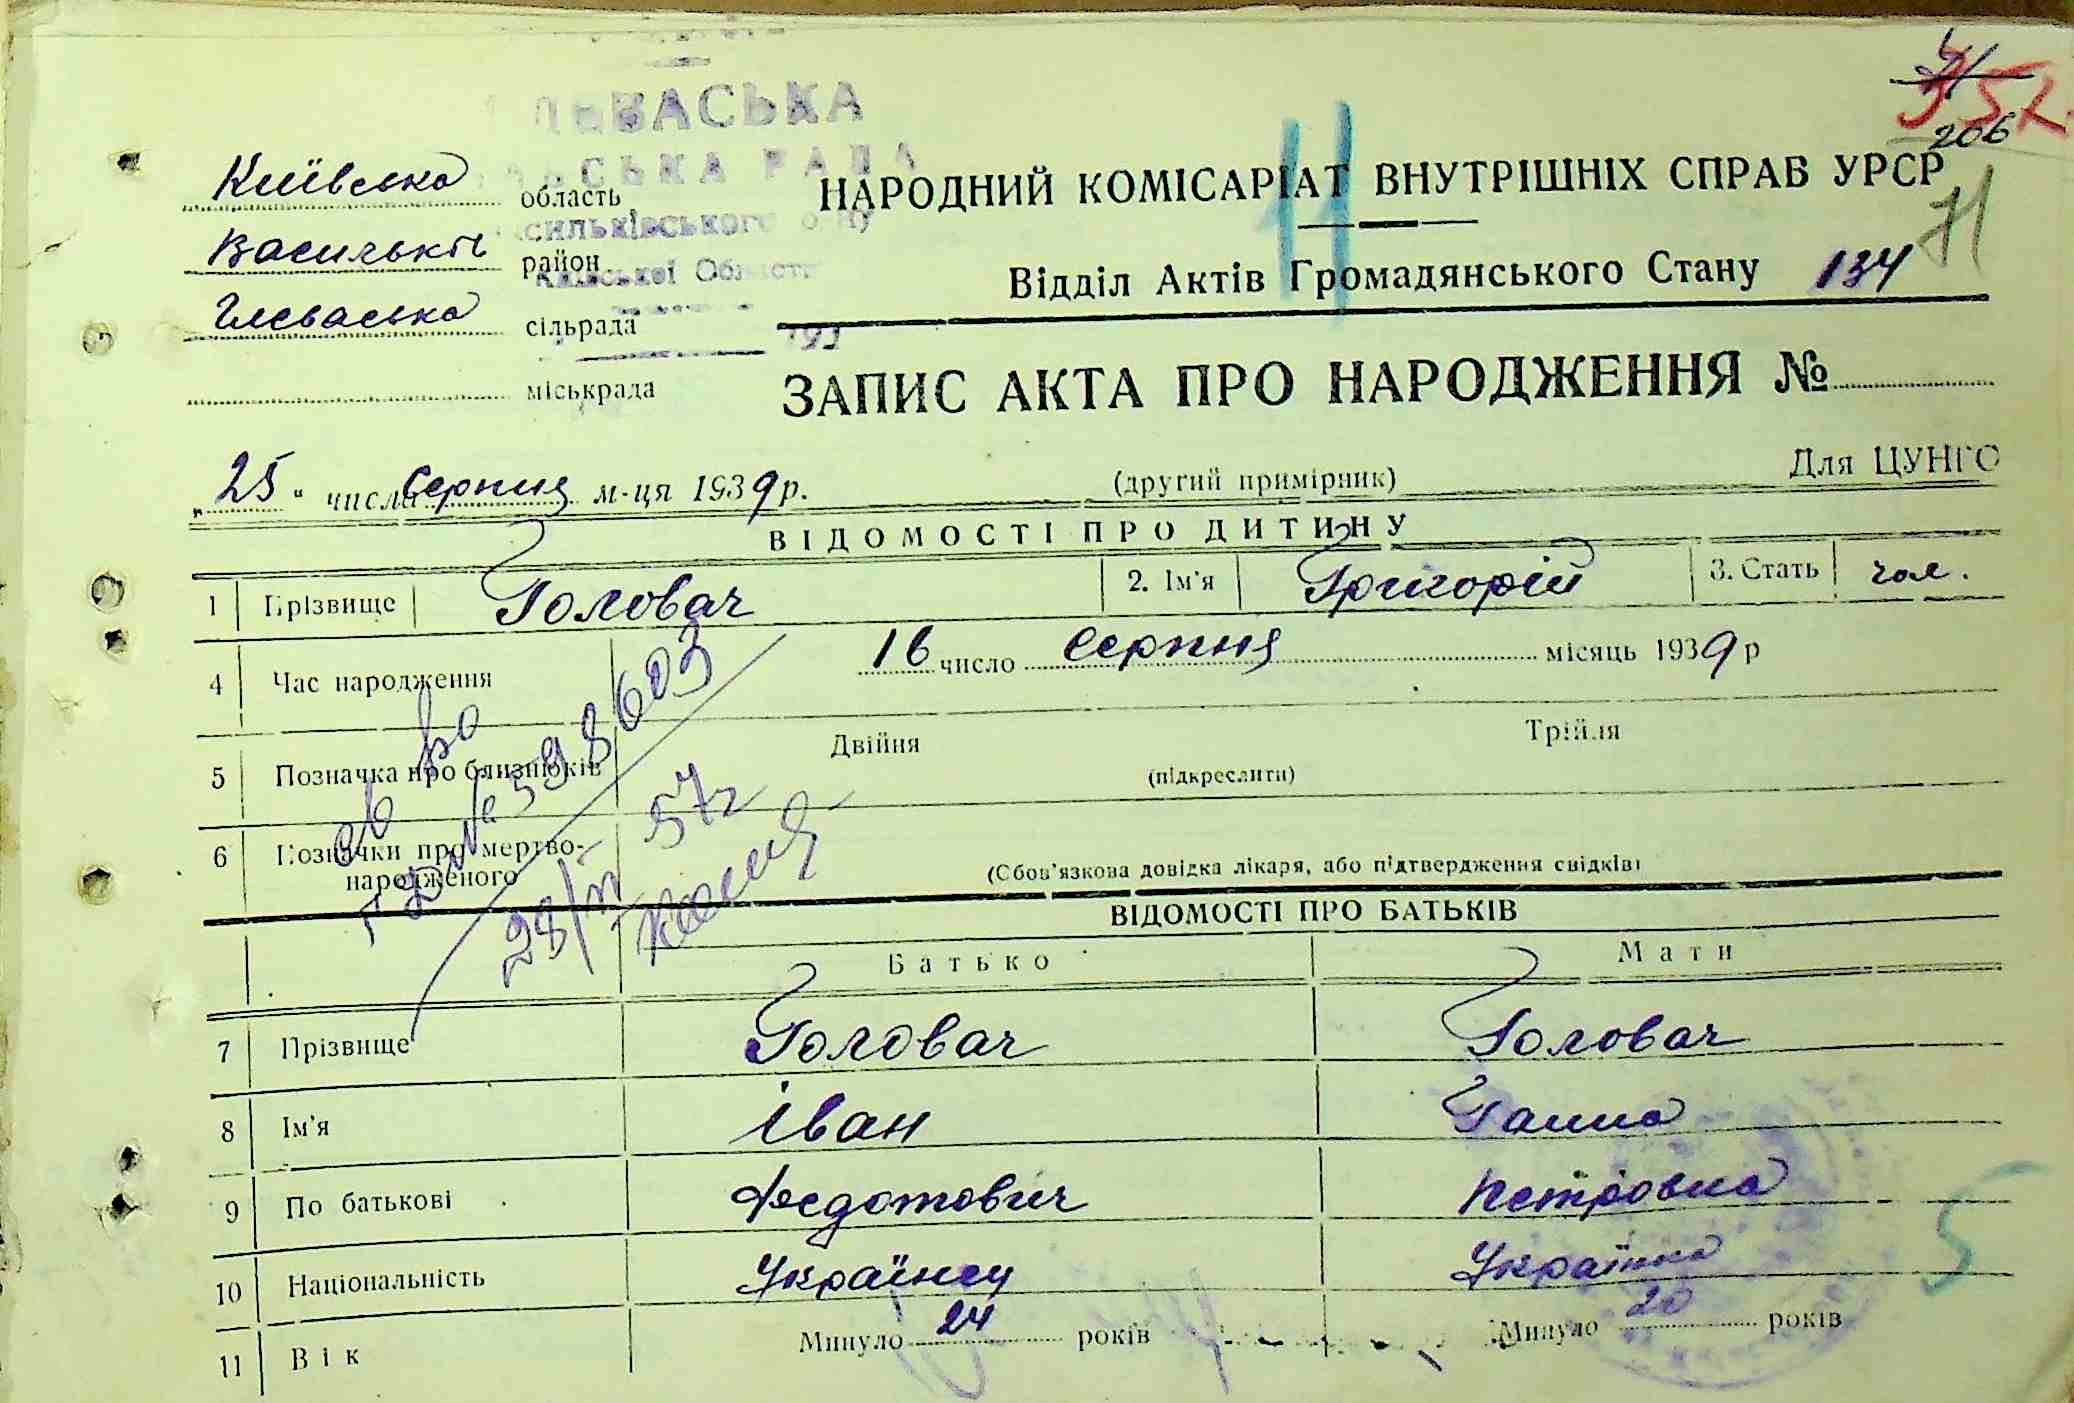 ЕВАСЬКА
СЬКА РАДА
сильківського р-ну
Київської Області
193
41
352
206
71
Київська область
Васильків район
Глеваська сільрада
міськрада
НАРОДНИЙ КОМІСАРІАТ ВНУТРІШНІХ СПРАВ УРСР
Відділ Актів Громадянського Стану 134
ЗАПИС АКТА ПРО НАРОДЖЕННЯ №
„25" числа Серпня м-ця 1939 р. (другий примірник) Для ЦУНГО
ВІДОМОСТІ ПРО ДИТИНУ
1 Прізвище Головач 2. Ім'я Григорій 3. Стать чол.
4 Час народження 16 число Серпня місяць 1939 р
5 Позначка про близнюків Двійня Трійля
(підкреслити)
6 Позначки про мертво-
народженого (Обов'язкова довідка лікаря, або підтвердження свідків)
№ 598603
57г
ВІДОМОСТІ ПРО БАТЬКІВ
Батько Мати
7 Прізвище Головач Головач
8 Ім'я Іван Ганна
9 По батькові Федотович Петровна
10 Національність Українец Українка
5
11 Вік Минуло 24 років Минуло 20 років